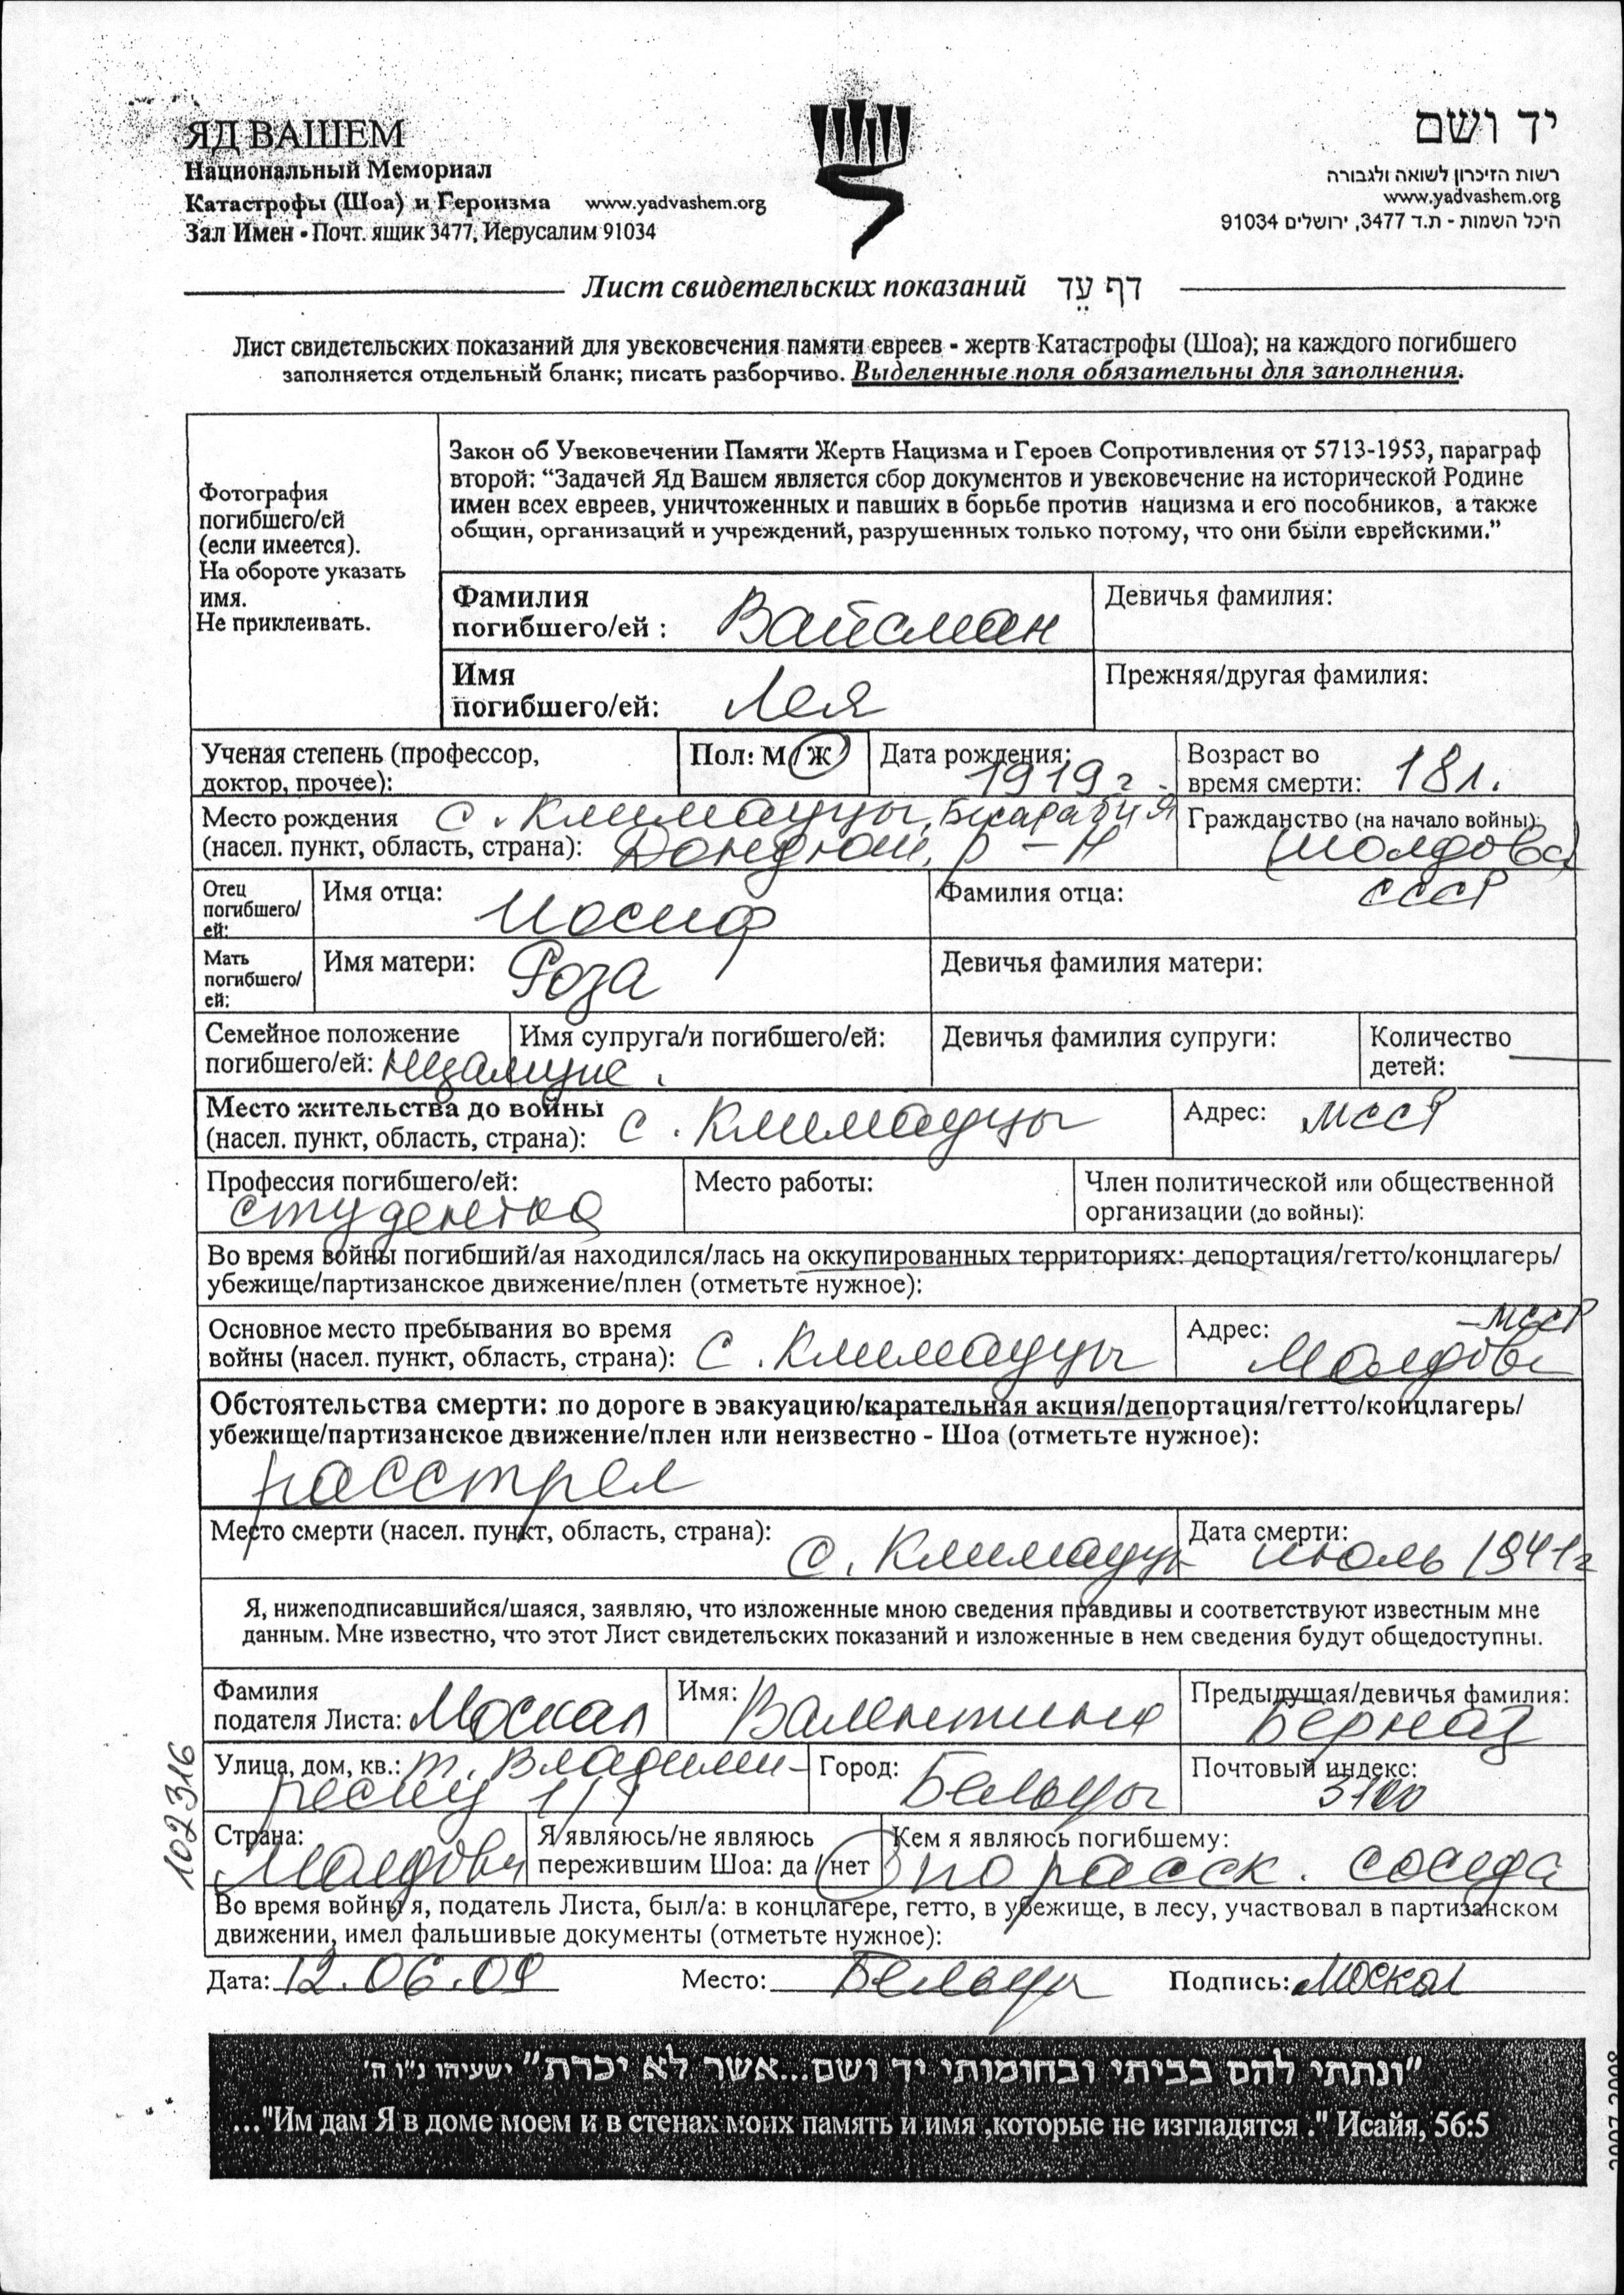 ЯД ВАШЕМ
Национальный Мемориал
Катастрофы (Шоа) и Героизма www.yadvashem.org
Зал Имен • Почт. ящик 3477, Иерусалим 91034
יד ושם
רשות הזיכרון לשואה ולגבורה
www.yadvashem.org
היכל השמות - ת.ד 3477, ירושלים 91034
Лист свидетельских показаний דף עֵד
Лист свидетельских показаний для увековечения памяти евреев - жертв Катастрофы (Шоа); на каждого погибшего
заполняется отдельный бланк; писать разборчиво. Выделенные поля обязательны для заполнения.
Фотография
погибшего/ей
(если имеется).
На обороте указать
имя.
Не приклеивать.
Закон об Увековечении Памяти Жертв Нацизма и Героев Сопротивления от 5713-1953, параграф
второй: “Задачей Яд Вашем является сбор документов и увековечение на исторической Родине
имен всех евреев, уничтоженных и павших в борьбе против нацизма и его пособников, а также
общин, организаций и учреждений, разрушенных только потому, что они были еврейскими.”
Фамилия
погибшего/ей : Вайсман
Девичья фамилия:
Имя
погибшего/ей: Лея
Прежняя/другая фамилия:
Ученая степень (профессор,
доктор, прочее):
Пол: М Ж
Дата рождения:
1919 г.
Возраст во
время смерти: 18 л.
Место рождения с. Климауцы, Бесарабия
(насел. пункт, область, страна): Дондюш. р-н
Гражданство (на начало войны):
(Молдова)
СССР
Отец
погибшего/
ей:
Имя отца: Иосиф
Фамилия отца:
Мать
погибшего/
ей:
Имя матери: Роза
Девичья фамилия матери:
Семейное положение
погибшего/ей:
Имя супруга/и погибшего/ей:
Девичья фамилия супруги:
Количество
детей: —
Место жительства до войны
(насел. пункт, область, страна): с. Климауцы
Адрес: МССР
Профессия погибшего/ей:
студентка
Место работы:
Член политической или общественной
организации (до войны):
Во время войны погибший/ая находился/лась на оккупированных территориях: депортация/гетто/концлагерь/
убежище/партизанское движение/плен (отметьте нужное):
Основное место пребывания во время
войны (насел. пункт, область, страна): с. Климауцы
Адрес: - МССР
Молдова
Обстоятельства смерти: по дороге в эвакуацию/карательная акция/депортация/гетто/концлагерь/
убежище/партизанское движение/плен или неизвестно - Шоа (отметьте нужное):
расстрел
Место смерти (насел. пункт, область, страна):
с. Климауцы
Дата смерти:
июль 1941г
Я, нижеподписавшийся/шаяся, заявляю, что изложенные мною сведения правдивы и соответствуют известным мне
данным. Мне известно, что этот Лист свидетельских показаний и изложенные в нем сведения будут общедоступны.
Фамилия
подателя Листа: Москал
Имя: Валентина
Предыдущая/девичья фамилия:
Берназ
Улица, дом, кв.: т. Владими-
реску 1/1
Город:
Бельцы
Почтовый индекс:
3100
Страна:
Молдова
Я являюсь/не являюсь
пережившим Шоа: да / нет
Кем я являюсь погибшему:
по расск. соседа
Во время войны я, податель Листа, был/а: в концлагере, гетто, в убежище, в лесу, участвовал в партизанском
движении, имел фальшивые документы (отметьте нужное):
Дата: 12.06.09 Место: Бельцы Подпись: Москал
102316
"ונתתי להם בביתי ובחומותי יד ושם...אשר לא יכרת" ישעיהו נ"ו ה'
..."Им дам Я в доме моем и в стенах моих память и имя ,которые не изгладятся ." Исайя, 56:5